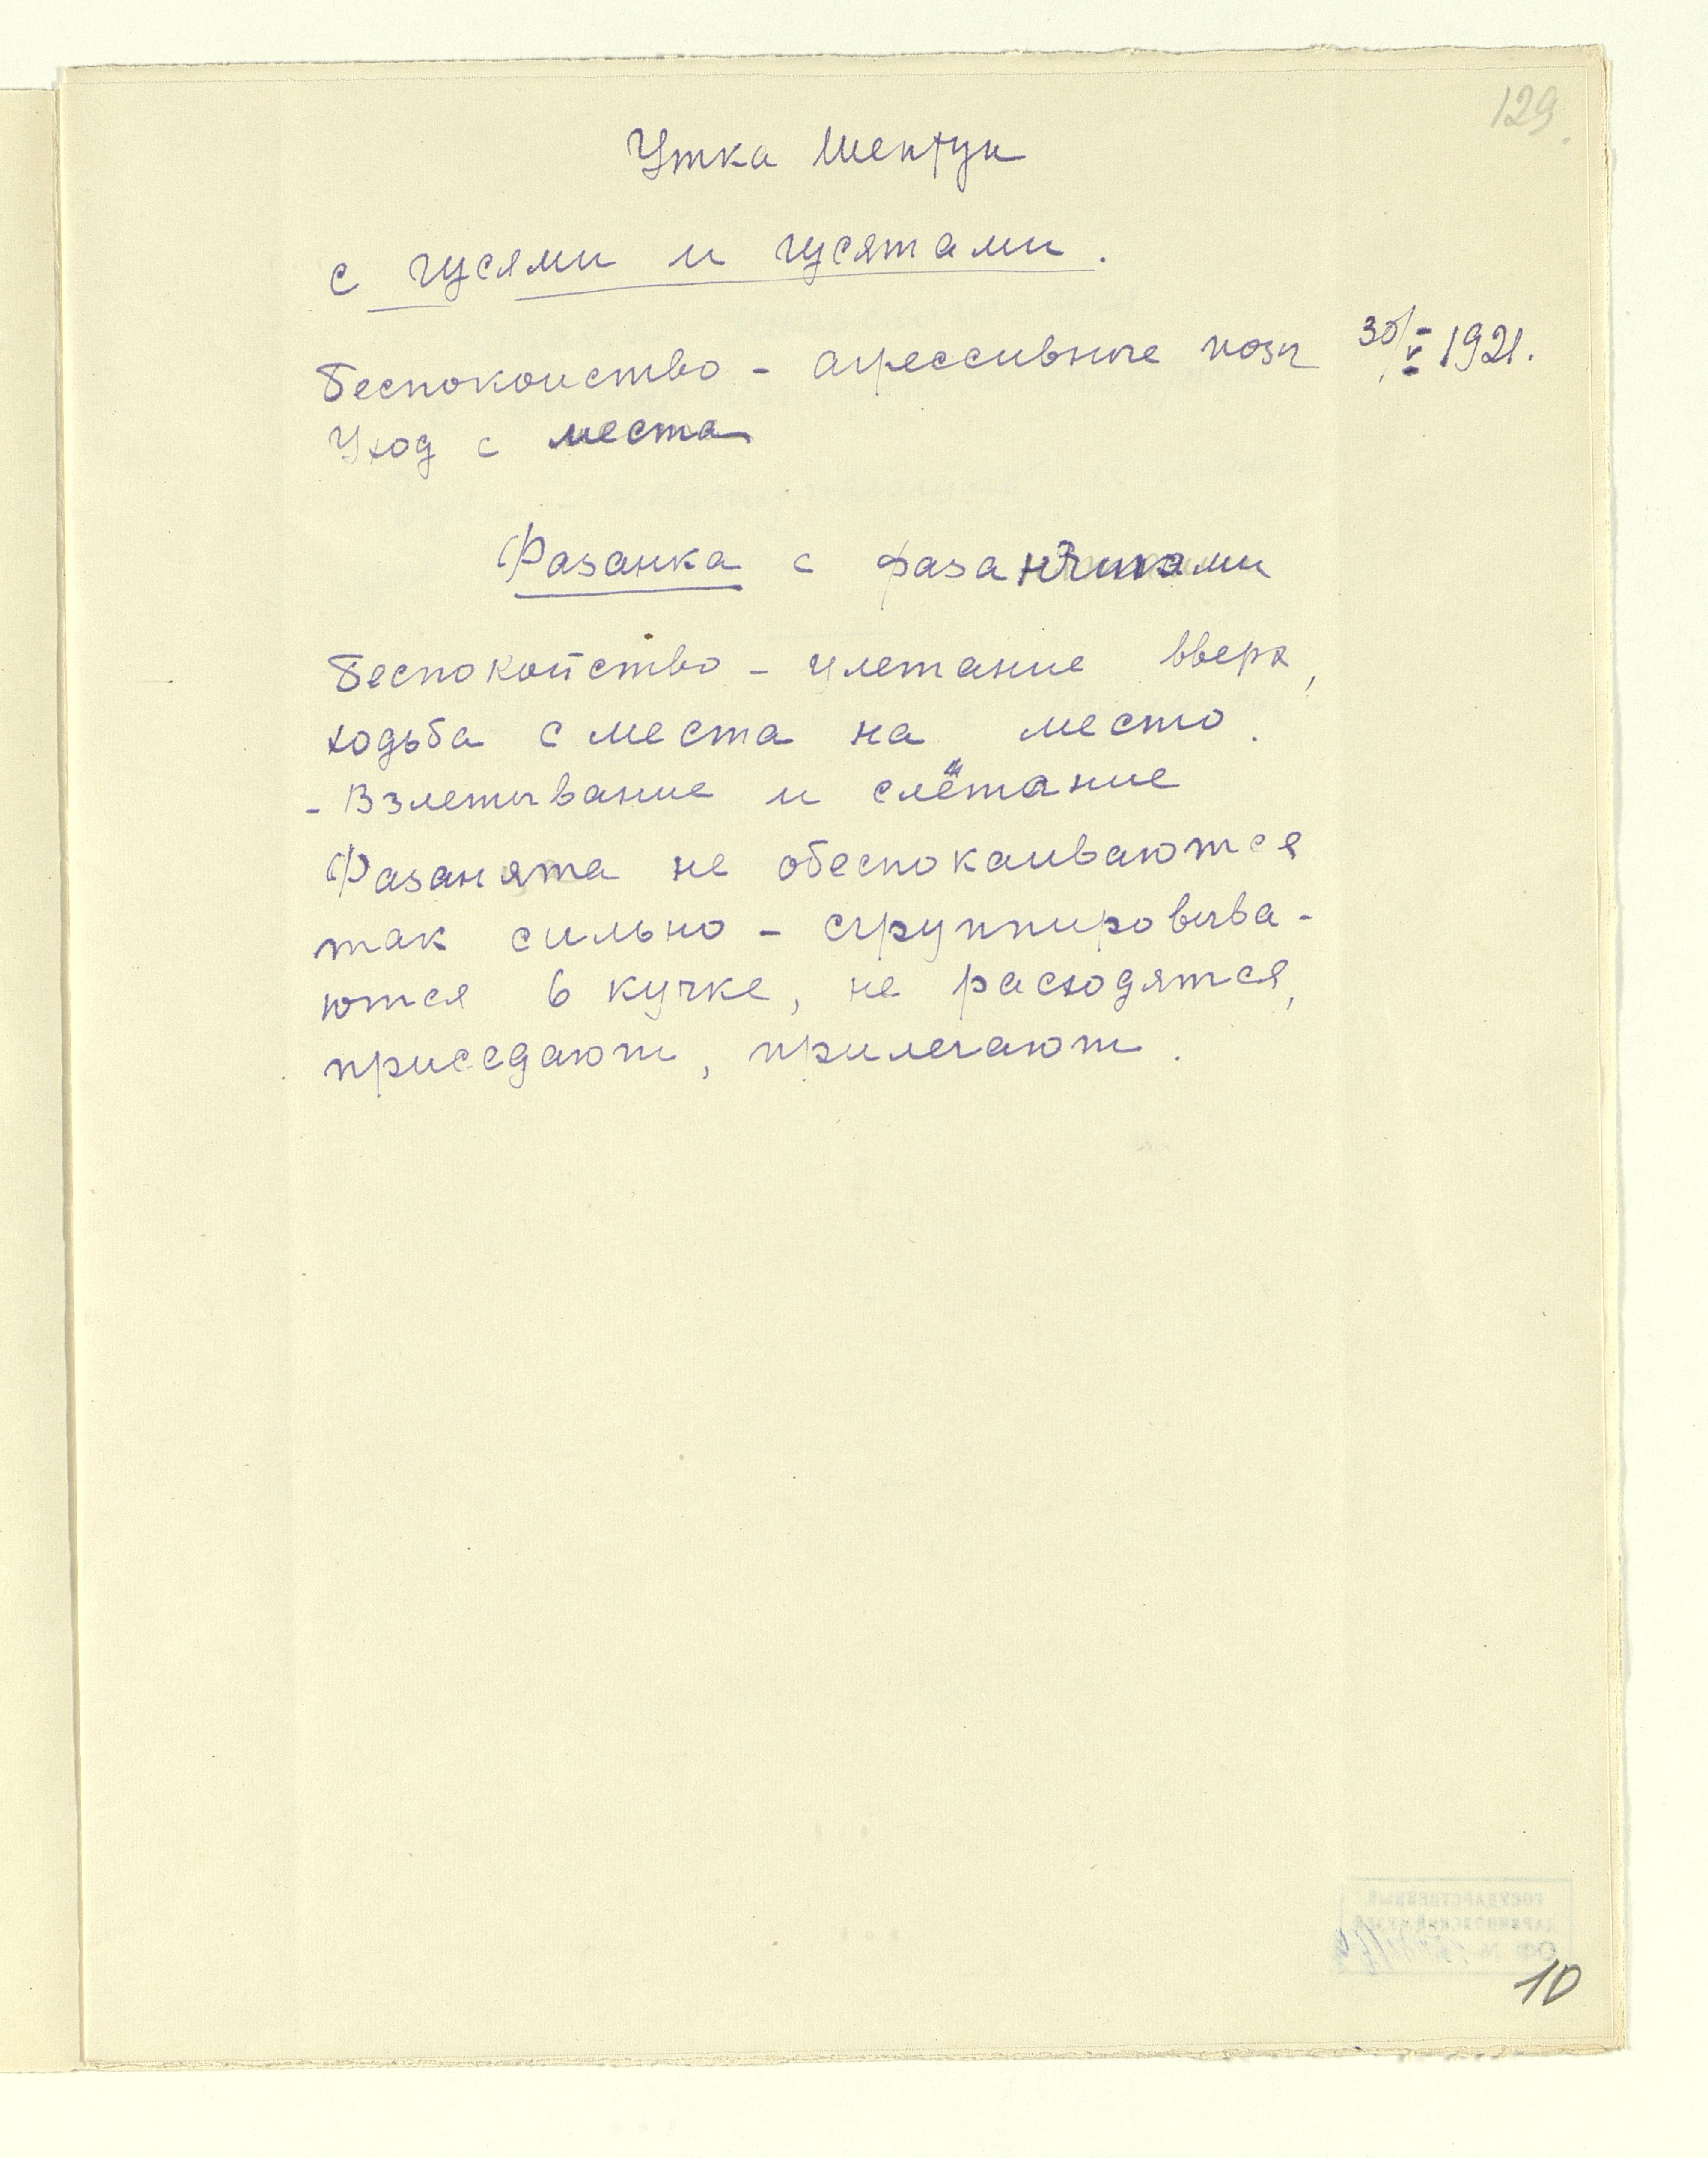 129.
Утка Шептун
с гусями и гусятами.
Беспокоиство - агрессивные позы 30/V 1921.
Уход с места
Фазанка с фазанчиками
Беспокойство - улетание вверх,
ходьба с места на место.
- Взлетывание и слётание
Фазанята не обеспокаиваются
так сильно - сгруппировыва-
ются в кучке, не расходятся,
приседают, прилегают.
ГОСУДАРСТВЕННЫЙ
ДАРВИНОВСКИЙ МУЗЕЙ
ОФ №
10